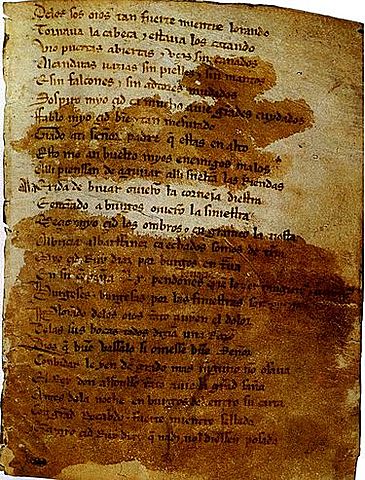 Delos sos oios tan fuerte mientre lorando
Tornaua la cabeça & estaua los catando
Vio puertas abiertas & vços sin cañados
Alcandaras uazias sin pielles & sin mantos
E sin falcones & sin adtores mudados
Sospiro myo çid ca mucho auie grādes cuydados
Fablo myo çid bien & tan mesurado
Grado ati señor padre q̄ estas en alto
Esto me an buelto myos enemigos malos
Alli pienssan de aguijar alli sueltā las Riendas
Ala exida de biuar ouierō la corneja diestra
E entrādo a burgos ouierō la siniestra
Meçio myo çid los ombros & en grameo la tiesta
Albricia albarffanez ca echados somos de tr̄ra
Myo çid Ruy diaz por burgos en traua
En su cōpaña Lx pendones
Burgeses & burgesas por las finiestras son
Plorando delos oios tāto auyen el dolor
Delas sus bocas todos dizian una Razō
Dios q̄ buē vassalo si ouiesse buē Señor
Conbidar le yen de grado mas ninguno nō osaua
El Rey don alfonsso tāto auie la grād saña
Antes dela noche en burgos del entro su carta
Con grād Recabdo & fuerte mientre sellada
Que a myo çid Ruy diaz q̄ nadi nol diessen posada